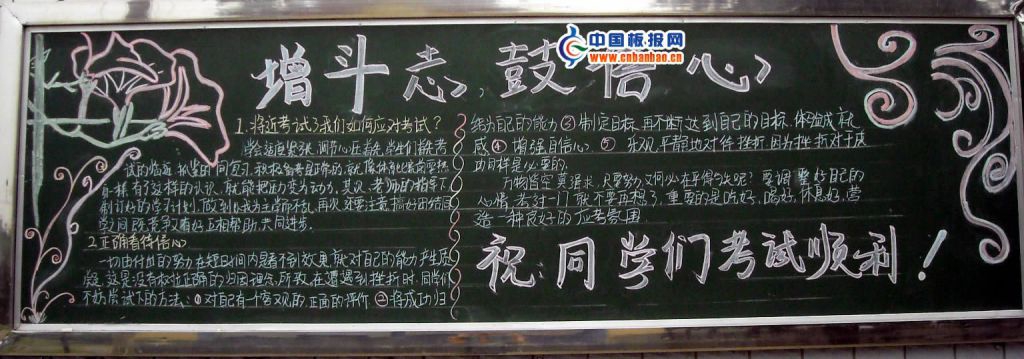 增斗志,鼓信心
中国板报网
www.cnbanbao.cn
1.将近考试了我们如何应对考试?
学会适度紧张,调节心态
有了这样的认识,就能把压力变为动力,其次,老师的指导下
制订好的学习计划,做到以我为主学而不乱,再次还要注意搞好团结同
学之间既竞争又友好,互相帮助,共同进步.
2.正确看待信心
一切由付出的努力在短时间内是看不到效果就对自己的能力产生质
疑,这是没有树立正确的归因理念,所致,在遭遇到挫折时,同学们
不妨尝试下的方法:①对自己有一个客观的正面的评价 ②将成功归
结为自己的能力③制定目标,再不断达到自己的目标,体验成就
感④增强自信心.⑤乐观,平静地对待挫折,因为挫折对于成
功同样是必要的.
万物皆空莫强求,只要努力又何必在乎得与失呢?要调整好自己的
心情,考过一门就不要再想了,重要的是吃好,喝好,休息好,营
造一种良好的应考氛围
祝:同学们考试顺利!